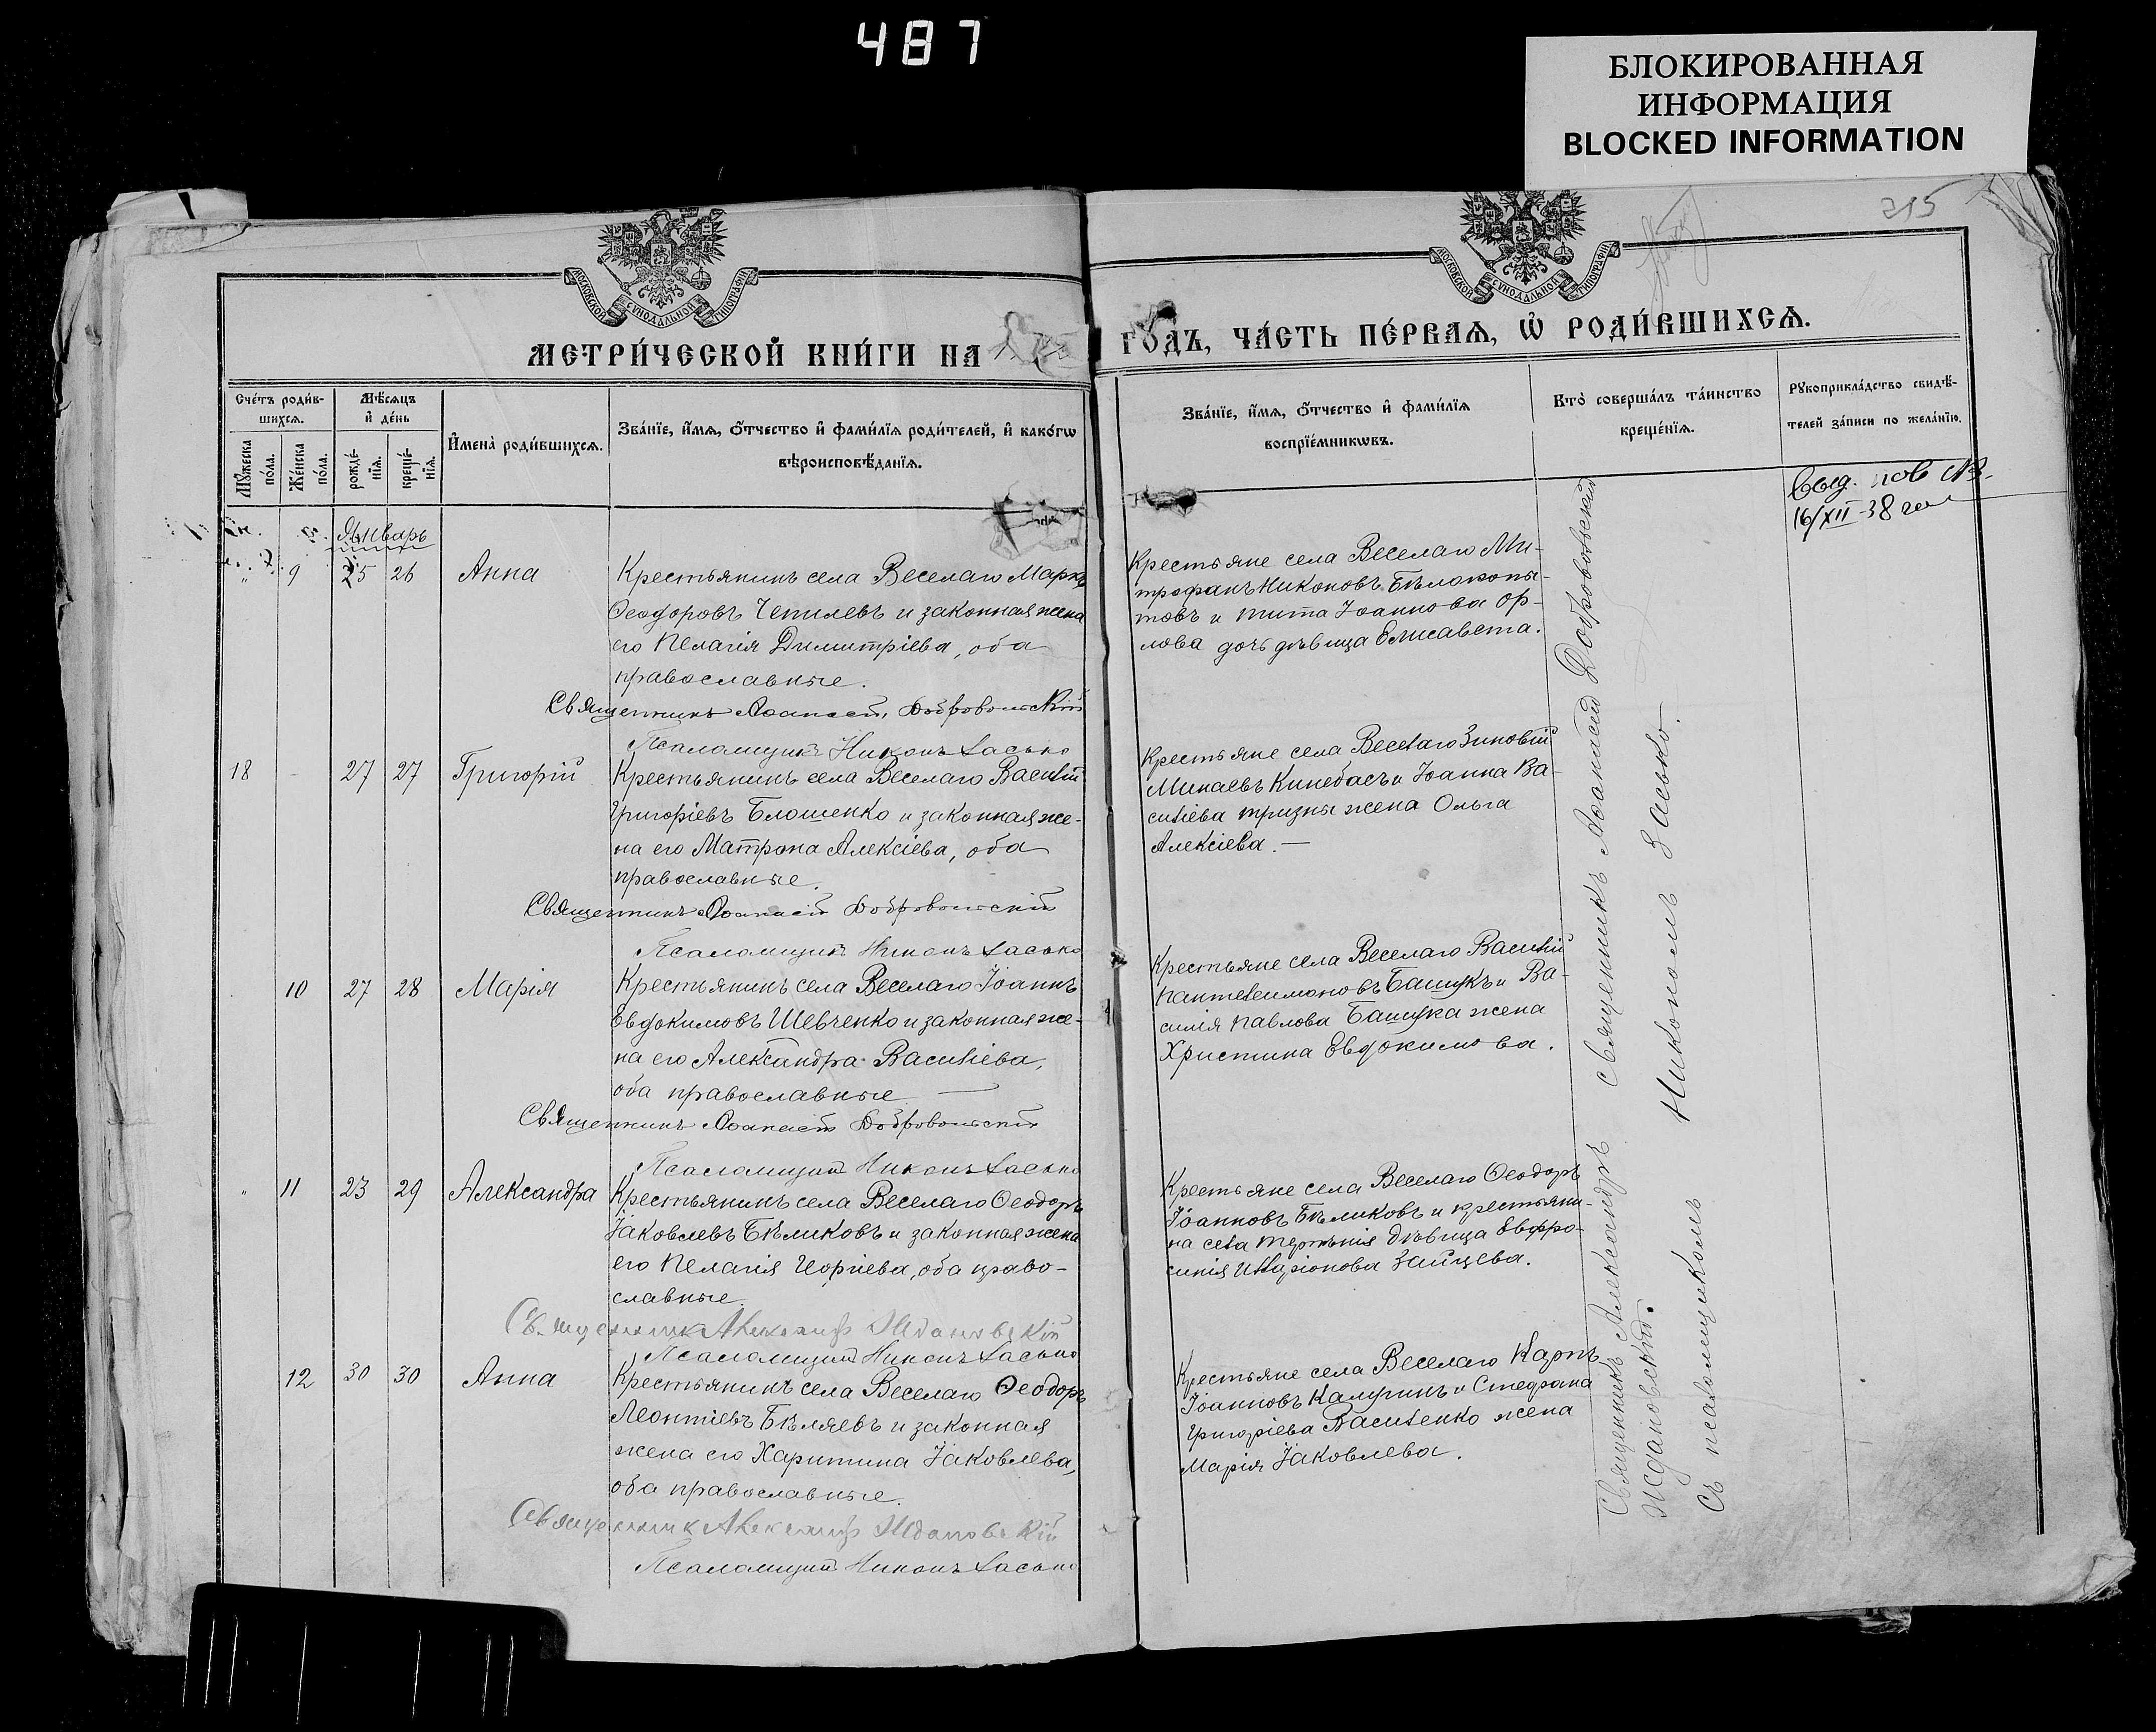 487
БЛОКИРОВАННАЯ
ИНФОРМАЦИЯ
BLOCKED INFORMATION
215
МОСКОВСКОЙ СѴНОДАЛЬНОЙ ТИПОГРАФІИ
МОСКОВСКОЙ СѴНОДАЛЬНОЙ ТИПОГРАФІИ
МЕТРИ́ЧЕСКОЙ КНИ́ГИ НА
ГО́ДЪ, ЧА́СТЬ ПЕ́РВАЯ, Ѡ РОДИ́ВШИХСЯ.
Сче́тъ роди́в-
шихся.
Мꙋ́жеска по́ла.
Же́нска по́ла.
Мѣ́сяцъ
и҆ де́нь
рожде́-
нїя.
креще́-
нїя.
И҆мена̀ роди́вшихся.
Зва́нїе, и҆́мя, ѻ҆́тчество и҆ фами́лїя роди́телей, и҆ како́гѡ
вѣроисповѣ́данїя.
Зва́нїе, и҆́мя, ѻ҆́тчество и҆ фами́лїя
воспрїе́мникѡвъ.
Кто̀ соверша́лъ та́инство
креще́нїя.
Рꙋкоприкла́дство свидѣ́-
телей за́писи по жела́нїю.
16/XII-38
Январь
9 25 26 Анна
Крестьянинъ села Веселаго Маркъ
Ѳеодоровъ Чепилевъ и законная жена
его Пелагія Димитріева, оба
православные.
Священникъ Аѳанасій Добровольскій
Псаломщикъ Никонъ Засько
Крестьяне села Веселаго Ми-
трофанъ Никоновъ Бѣлокопы-
товъ и Тита Іоаннова Ор-
лова дочь дѣвица Елисавета.
18 - 27 27 Григорій
Крестьянинъ села Веселаго Василій
Григоріевъ Блошенко и законная же-
на его Матрона Алексіева, оба
православные.
Священникъ Аѳанасій Добровольскій
Псаломщикъ Никонъ Засько
Крестьяне села Веселаго Зиновій
Минаевъ Кинебасъ и Іоанна Ва-
силіева Тризны жена Ольга
Алексіева.—
10 27 28 Марія
Крестьянинъ села Веселаго Іоаннъ
Евдокимовъ Шевченко и законная же-
на его Александра Василіева,
оба православные
Священникъ Аѳанасій Добровольскій
Псаломщикъ Никонъ Засько
Крестьяне села Веселаго Василій
Пантелеимоновъ Башукъ и Ва-
силія Павлова Башука жена
Христина Евдокимова.
" 11 23 29 Александра
Крестьянинъ села Веселаго Ѳеодоръ
Іаковлевъ Бѣликовъ и законная жена
его Пелагія Георгіева, оба право-
славные.
Священникъ Александръ Ждановскій
Псаломщикъ Никонъ Засько
Крестьяне села Веселаго Ѳеодоръ
Іоанновъ Бѣликовъ и крестьян-
ка села дѣвица Евфро-
синія Иларіонова Зайцева.
12 30 30 Анна
Крестьянинъ села Веселаго Ѳеодоръ
Леонтіевъ Бѣляевъ и законная
жена его Харитина Іаковлева,
оба православные.
Священникъ Александръ Ждановскій
Псаломщикъ Никонъ Засько
Крестьяне села Веселаго Карпъ
Іоанновъ Калугинъ и Стефана
Григоріева Василенко жена
Марія Іаковлева.
Священникъ Александръ Священникъ Аѳанасій Добровольскій
Ждановскій.
Съ псаломщикомъ Никономъ Засько.